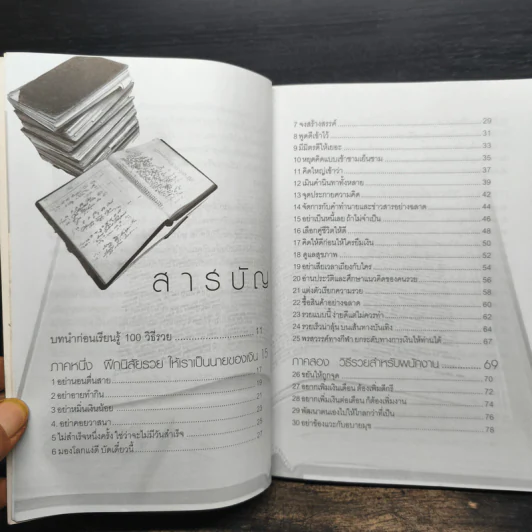 สารบัญ
บทนำก่อนเรียนรู้ 100 วิธีรวย
ภาคหนึ่ง ฝึกนิสัยรวย ให้เราเป็นนายของเงิน 15
1 อย่านอนตื่นสาย 17
2 อย่าอายทำกิน 19
3 อย่าหมิ่นเงินน้อย 21
4 อย่าคอยวาสนา
5 ไม่สำเร็จหนึ่งครั้ง ใช่ว่าจะไม่มีวันสำเร็จ
6 มองโลกแง่ดี บัดเดี๋ยวนี้ 27
7 จงสร้างสรรค์ 29
8 พูดดีเข้าไว้ 31
9 มีมิตรดีให้เยอะ 33
10 หยุดคิดแบบเช้าชามเย็นชาม 35
11 คิดใหญ่เข้าว่า 37
12 เมินคำนินทาทั้งหลาย 39
13 จุดประกายความคิด 42
14 จัดการกับคำทำนายและข่าวสารอย่างฉลาด 44
15 อย่าเป็นหนี้เลย ถ้าไม่จำเป็น 46
16 เลือกคู่ชีวิตให้ดี 48
17 คิดให้ดีก่อนให้ใครยืมเงิน 50
18 ดูแลสุขภาพ 52
19 อย่าเสียเวลาเถียงกับใคร 54
20 อ่านประวัติและศึกษาแนวคิดของคนรวย 56
21 แต่งตัวเรียกความรวย 58
22 ซื้อสินค้าอย่างฉลาด 60
23 รวยแบบนี้ ง่ายดีแต่ไม่ควรทำ 62
24 รวยเร็วน่าลุ้น บนเส้นทางบันเทิง 64
25 พรสวรรค์ทางกีฬา ยกระดับทางการเงินให้ท่านได้ 67
ภาคสอง วิธีรวยสำหรับพนักงาน 69
26 ขยันให้ถูกจุด 70
27 อยากเพิ่มเงินเดือน ต้องเพิ่มดีกรี 72
28 อยากเพิ่มเงินต่อเดือน ก็ต้องเพิ่มงาน 74
29 พัฒนาตนเองไปให้ไกลกว่าที่เป็น 76
30 อย่าข้องแวะกับอบายมุข 78